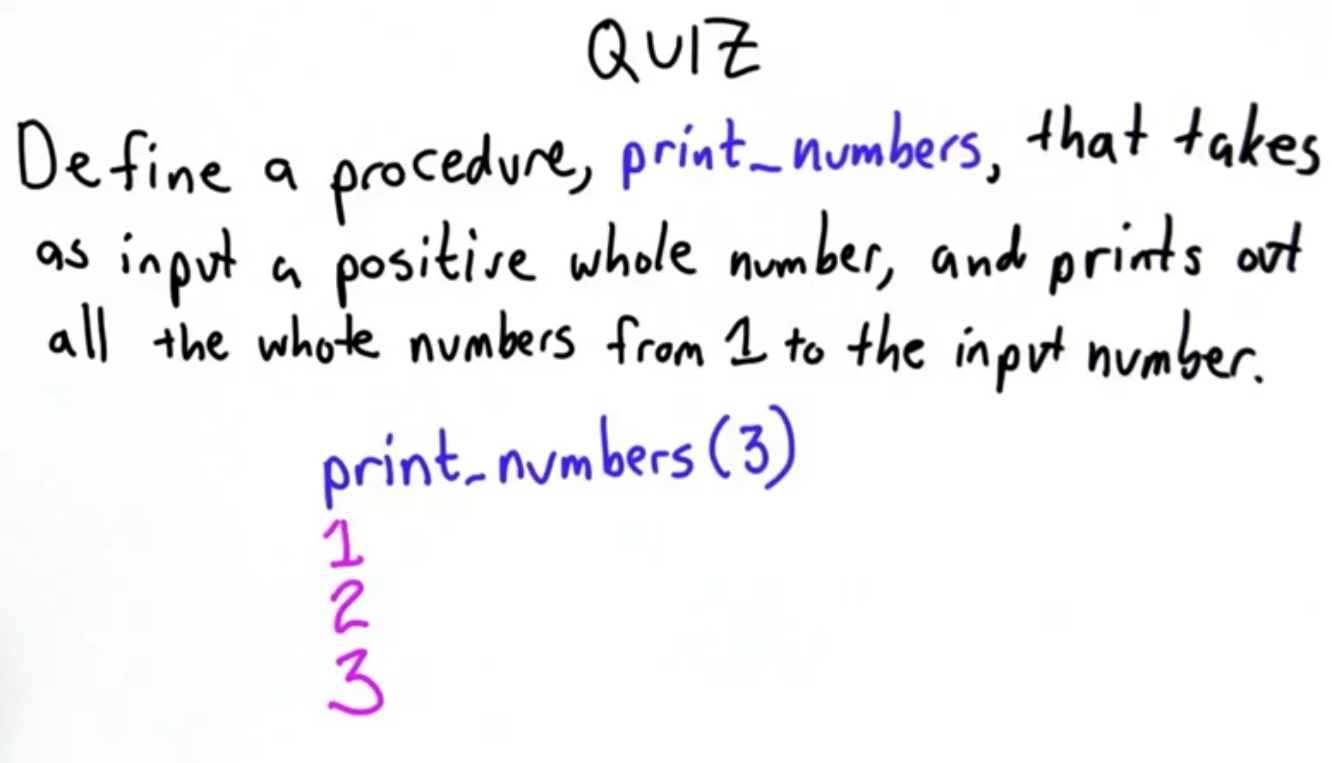 QUIZ
Define a procedure, print_numbers, that takes
as input a positive whole number, and prints out
all the whole numbers from 1 to the input number.
print_numbers(3)
1
2
3